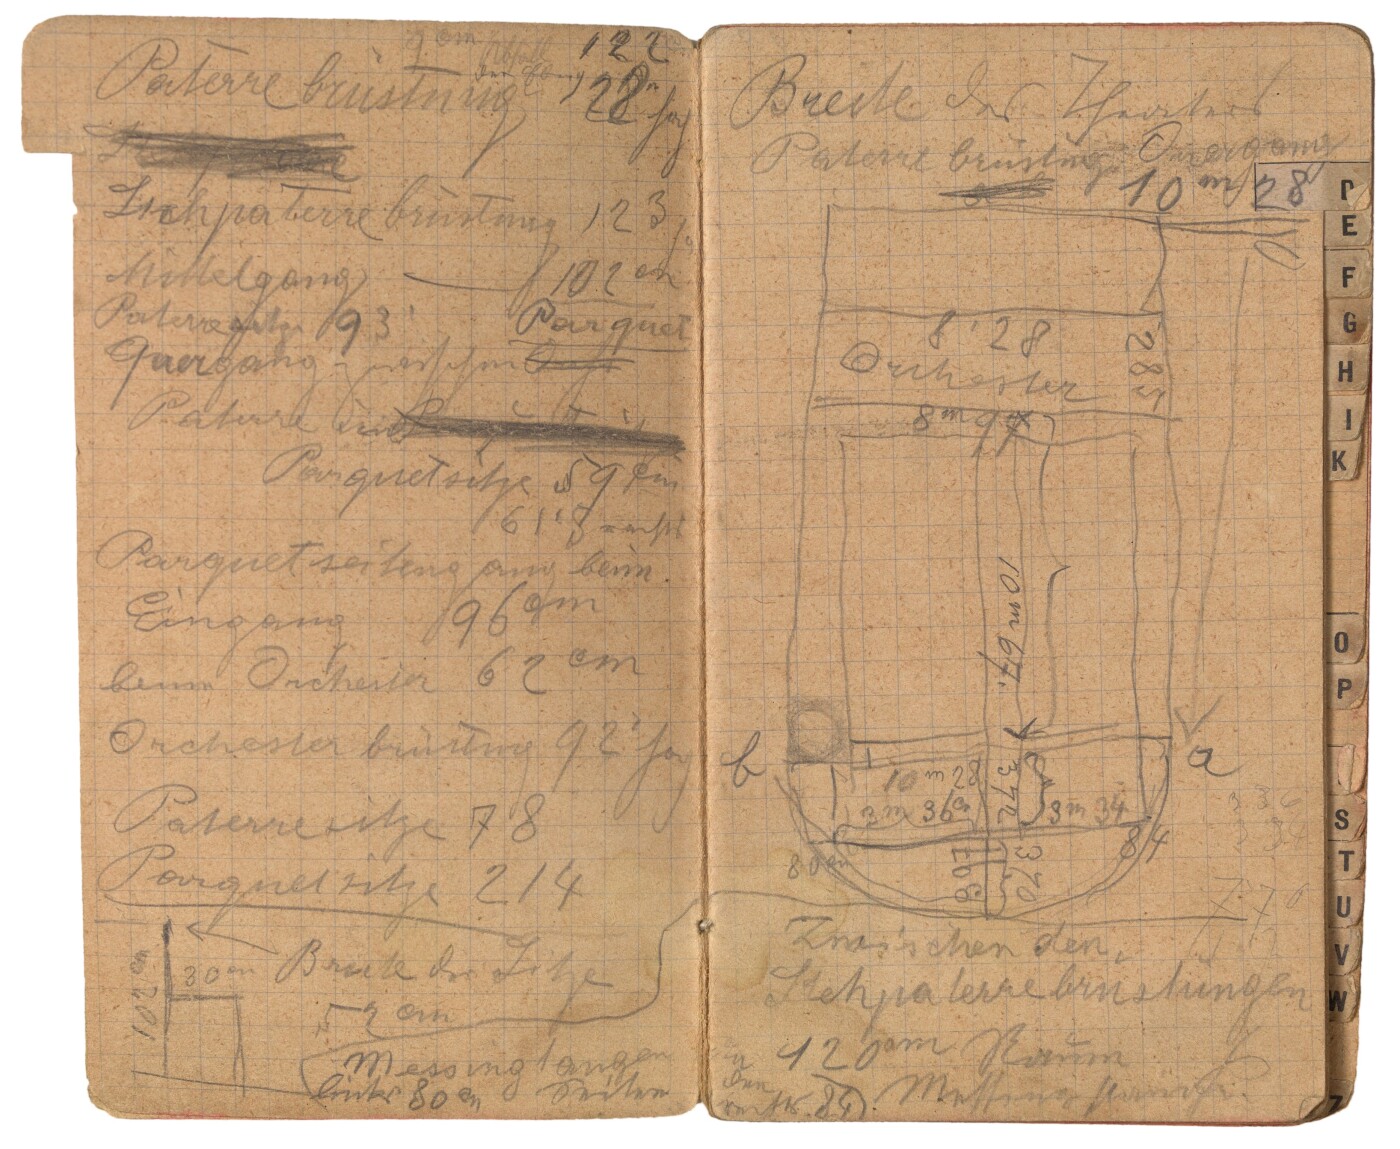 9 cm Abfall 122
Paterre brüstung 128 cm
Stehpaterre brüstung 123
Mittelgang 102 cm
Paterresitze 93 Parquet
Quergang zwischen
Paterre
Parquetsitze 59 cm
61'5
Parquetseitengang beim
Eingang 96 cm
beim Orchester 62 cm
Orchester brüstung 92
Paterresitze 78
Parquetsitze 214
102 cm
30 cm Breite der Sitze
52 cm
Messingtangen
links 80 cm Seiten
Breite des Theaters
Paterre brüstung Quergang
10 m 28
8'28
Orchester
285
8 m 97
10 m 67
b
a
10 m 28
372
3 m 36 cm
3 m 34
84
80 cm
370
3 36
3 34
7 70
Zwischen den
Stehpaterre brüstungen
120 cm Raum
den
rechts 84
P
E
F
G
H
I
K
O
P
S
T
U
V
W
Z